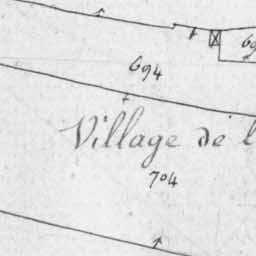 694
Village de
704